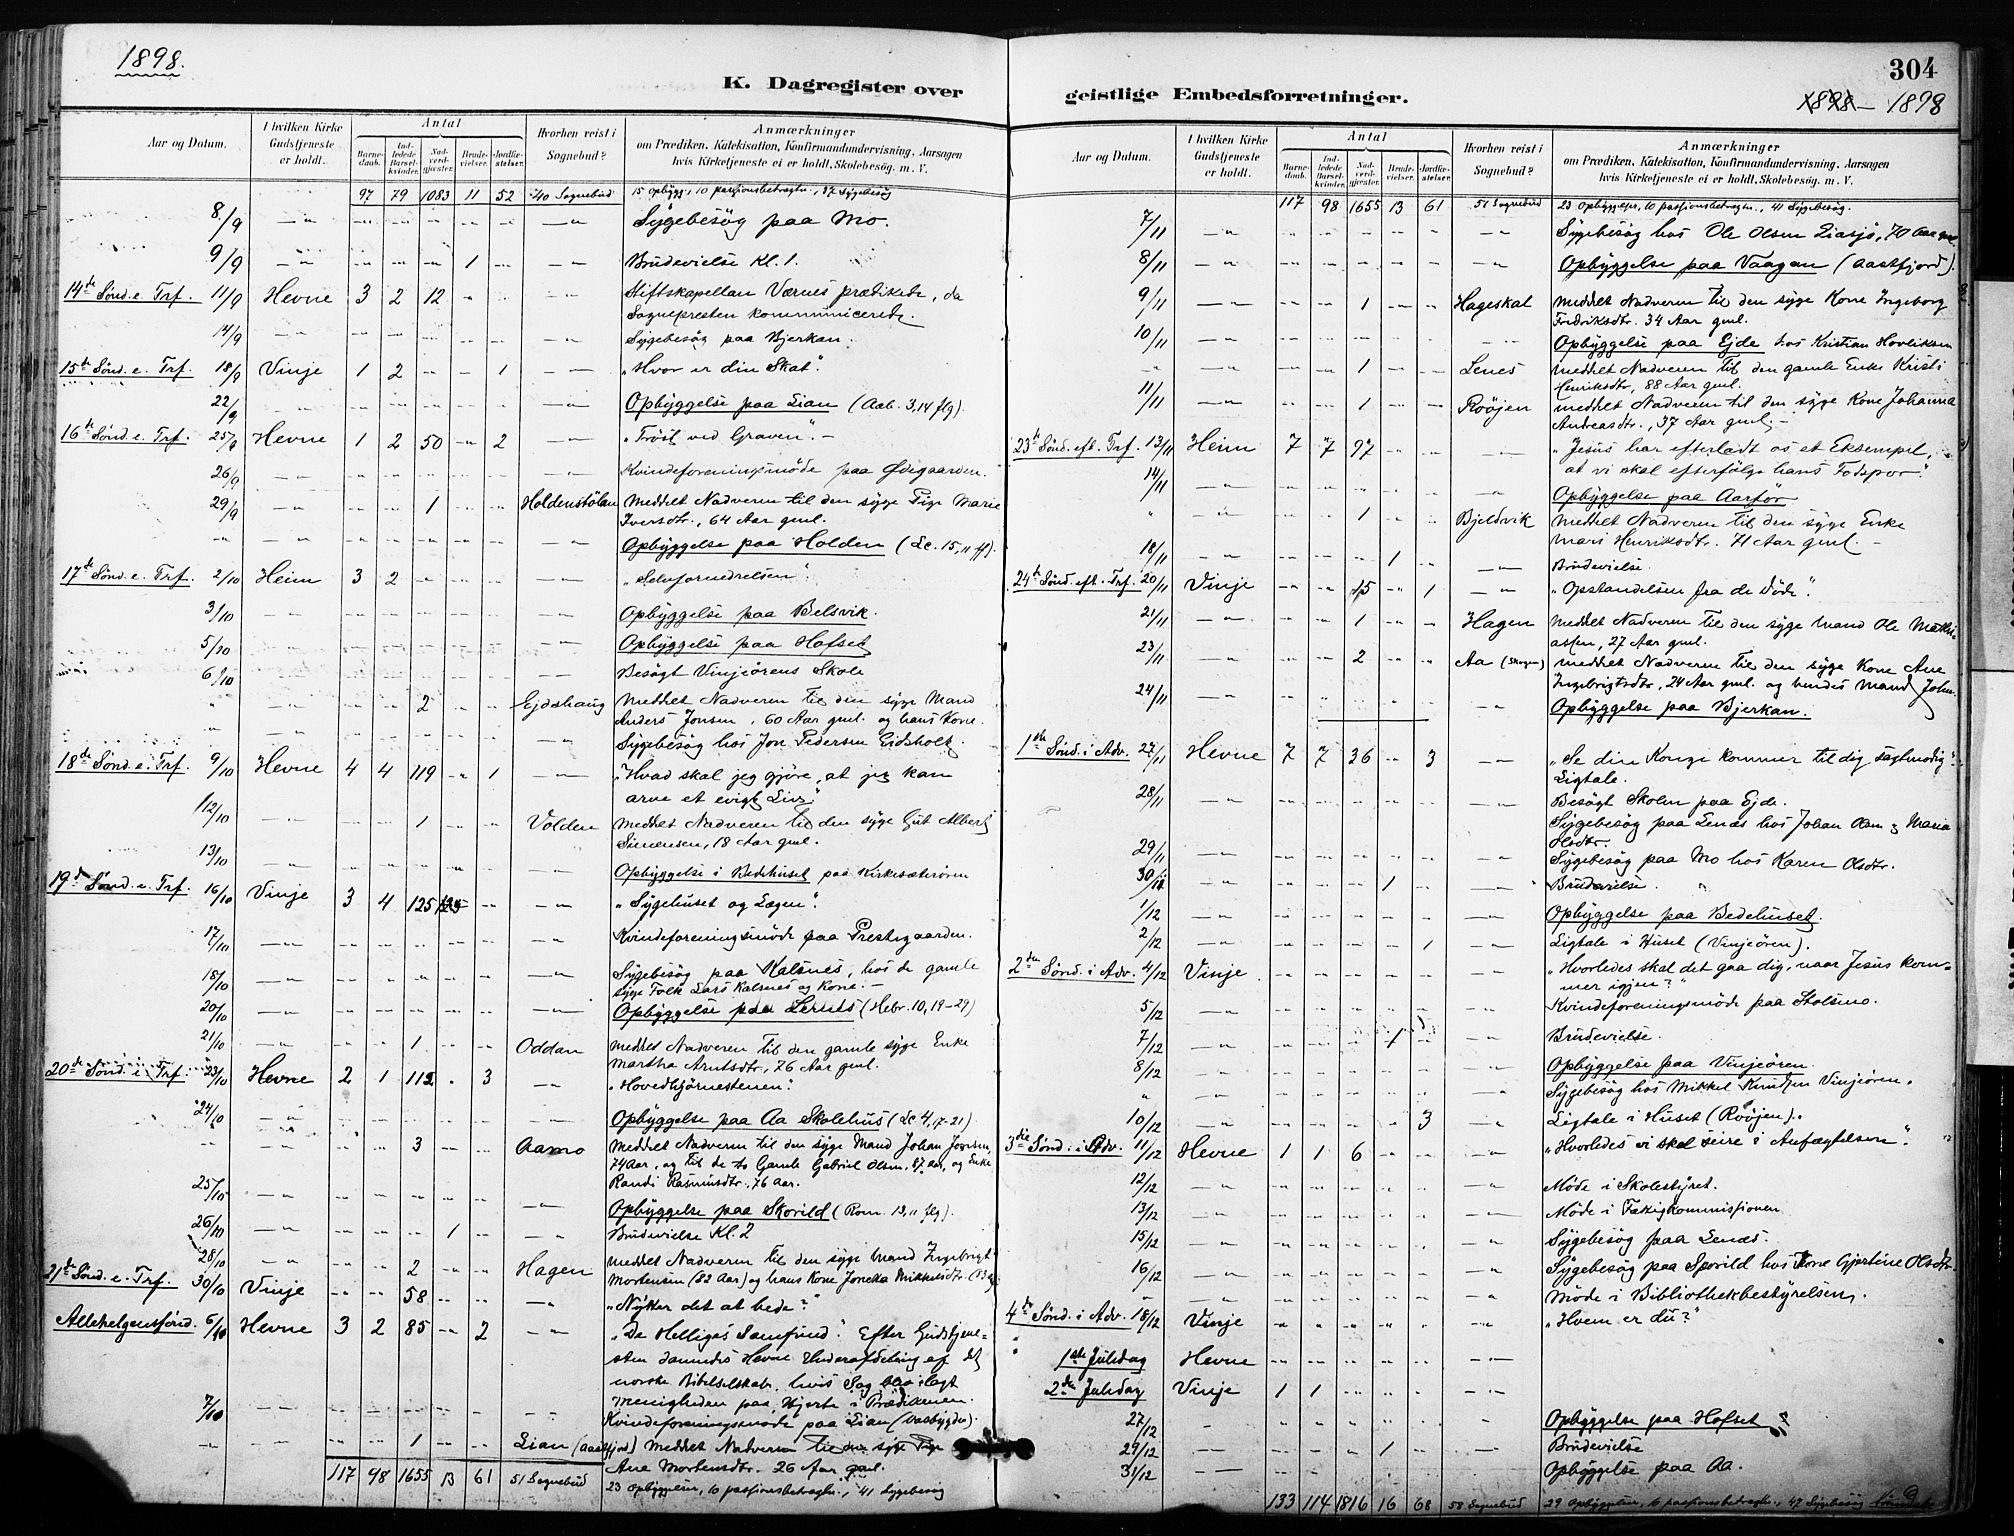 1898.
304
K. Dagregister over geistlige Embedsforretninger.
1898 - 1898
Aar og Datum.
I hvilken Kirke Gudstjeneste er holdt.
Antal
Barnedaab.
Indledede Barselkvinder.
Nadverdgjester.
Brudevielser.
Jordfæstelser.
Hvorhen reist i Sognebud?
Anmærkninger
om Prædiken, Katekisation, Konfirmandundervisning, Aarsagen
hvis Kirketjeneste ei er holdt, Skolebesøg. m. V.
97 79 1083 11 52 40 Sognebud 15 Opbygg., 10 pasjionsbetragtn., 37 Sygebesøg
8/9 Sygebesøg paa Mo.
9/9 1 Brudevielse Kl. 1.
14de Sønd. e. Trf. 11/9 Hevne 3 2 12 Stiftskapellan Værnes prædikede, da
Sognepresten kommunicerede.
14/9 Sygebesøg paa Bjerkan.
15de Sønd. e. Trf. 18/9 Vinje 1 2 1 "Hvor er din Skat".
22/9 Opbyggelse paa Lian (Aab. 3,14 flg).
16de Sønd. e. Trf. 25/9 Hevne 1 2 50 2 "Trøst ved Graven". -
26/9 Kvindeforeningsmøde paa Øvegaarden.
29/9 1 Holdenstølan Meddelt Nadveren til den syge Pige Marie
Iversdtr., 64 Aar gml.
Opbyggelse paa Holden (Lc. 15,11 ff).
17de Sønd. e. Trf. 2/10 Heim 3 2 "Selvfornedrelsen".
3/10 Opbyggelse paa Belsvik.
5/10 Opbyggelse paa Hofset
6/10 Besøgt Vinjeørens Skole
2 Ejdshaug Meddelt Nadveren til den syge Mand
Anders Jonsen, 60 Aar gml. og hans Kone.
Sygebesøg hos Jon Pedersen Eidsholt.
18de Sønd. e. Trf. 9/10 Hevne 4 4 119 1 "Hvad skal jeg gjøre, at jeg kan
arve et evigt Liv?"
12/10 1 Volden Meddelt Nadveren til den syge Gut Albert
Simensen, 18 Aar gml.
13/10 Opbyggelse i Bedehuset paa Kirksæterøren
19de Sønd. e. Trf. 16/10 Vinje 3 4 125 "Sygehuset og Lægen".
17/10 Kvindeforeningsmøde paa Prestegaarden.
18/10 Sygebesøg paa Kalsnes, hos de gamle
syge Folk Lars Kalsnes og Kone. -
20/10 Opbyggelse paa Lernes (Hebr. 10, 19-29)
21/10 1 Oddan Meddelt Nadveren til den gamle syge Enke
Martha Arntsdtr., 76 Aar gml.
20de Sønd. e. Trf. 23/10 Hevne 2 1 112 3 "Hovedhjørnestenen".
24/10 Opbyggelse paa Aa Skolehus (Lc. 4, 17-21)
3 Aamo Meddelt Nadveren til den syge Mand Johan Jonsen,
74 Aar, og til de to Gamle Gabriel Olsen, 87 Aar, og Enke
Randi Rasmusdtr., 76 Aar.
25/10 Opbyggelse paa Skorild (Rom. 13,11 flg).
26/10 1 Brudevielse Kl. 2
28/10 2 Hagen Meddelt Nadveren til den syge Mand Ingebrigt
Mortensen (82 Aar) og hans Kone Joneka Mikkelsdtr.
21de Sønd. e. Trf. 30/10 Vinje 58 "Nytter det at bede?"
Allehelgensfønd. 6/10 Hevne 3 2 85 2 "De Helliges Samfund". Efter Gudstjene-
sten dannedes Hevne Underafdeling af det
norske Bibelselskab, hvis Sag blev ilagt
Menigheden paa Hjerte i Prædikenen.
7/10 Kvindeforeningsmøde paa Lian (Vasbygden).
1 Lian (Aastfjord) Meddelt Nadveren til den syge Pige
Ane Mortensdtr. 26 Aar gml.
117 98 1655 13 61 51 Sognebud 23 Opbyggelser, 10 pasjionsbetragtn., 41 Sygebesøg
Aar og Datum.
I hvilken Kirke Gudstjeneste er holdt.
Antal
Barnedaab.
Indledede Barselkvinder.
Nadverdgjester.
Brudevielser.
Jordfæstelser.
Hvorhen reist i Sognebud?
Anmærkninger
om Prædiken, Katekisation, Konfirmandundervisning, Aarsagen
hvis Kirketjeneste ei er holdt, Skolebesøg. m. V.
117 98 1655 13 61 51 Sognebud 23 Opbyggelser, 10 pasjionsbetragtn., 41 Sygebesøg.
7/11 Sygebesøg hos Ole Olsen Liasjø, 70 Aar gml.
8/11 Opbyggelse paa Vaagan (Aastfjord).
9/11 1 Hageskal Meddelt Nadveren til den syge Kone Ingeborg
Fredriksdtr. 34 Aar gml.
10/11 Opbyggelse paa Ejde hos Kristian Hovliksen
1 Lenes Meddelt Nadveren til den gamle Enke Kristi
Henriksdtr, 88 Aar gml.
11/11 1 Røøjen Meddelt Nadveren til den syge Kone Johanna
Andreasdtr., 37 Aar gml. -
23de Sønd. eft. Trf. 13/11 Heim 7 7 97 "Jesus har efterladt os et Eksempel,
at vi skal efterfølge hans Fodspor".
14/11 Opbyggelse paa Aarfør
1 Bjeldvik Meddelt Nadveren til den syge Enke
Mari Henriksdtr. 71 Aar gml. -
18/11 1 Brudevielse.
24de Sønd. eft. Trf. 20/11 Vinje 15 1 "Opstandelsen fra de Døde".
21/11 1 Hagen Meddelt Nadveren til den syge Mand Ole Mathi-
assen, 27 Aar gml.
23/11 2 Aa (Skogen) Meddelt Nadveren til den syge Kone Ane
Ingebrigtsdtr., 24 Aar gml. og hendes Mand John.
24/11 Opbyggelse paa Bjerkan.
1ste Sønd. i Adv. 27/11 Hevne 7 7 36 3 "Se din Konge kommer til dig sagtmodig".
Ligtale.
28/11 Besøgt Skolen paa Ejde.
Sygebesøg paa Lenes hos Johan Olsen og Maria
Olsdtr.
29/11 Sygebesøg paa Mo hos Karen Olsdtr.
30/11 1 Brudevielse.
1/12 Opbyggelse paa Bedehuset.
2/12 1 Ligtale i Huset (Vinjeøren).
2den Sønd. i Adv. 4/12 Vinje "Hvorledes skal det gaa dig, naar Jesus kom-
mer igjen?"
5/12 Kvindeforeningsmøde paa Stolsmo.
7/12 1 Brudevielse.
8/12 Opbyggelse paa Vinjeøren.
Sygebesøg hos Mikkel Knudsen Vinjeøren.
10/12 3 Ligtale i Huset (Røøjen).
3die Sønd. i Adv. 11/12 Hevne 1 1 6 "Hvorledes vi skal seire i Anfægtelsen".
12/12 Møde i Skolestyret.
13/12 Møde i Fattigkommissjonen
15/12 Sygebesøg paa Lenes.
16/12 Sygebesøg paa Sporild hos Kone Gjertine Olsdtr.
Møde i Bibliothekbestyrelsen.
4de Sønd. i Adv. 18/12 Vinje "Hvem er du?"
1ste Juledag Hevne
2den Juledag Vinje 1 1
27/12 Opbyggelse paa Hofset
29/12 1 Brudevielse
31/12 Opbyggelse paa Aa.
133 114 1816 16 68 58 Sognebud 29 Opbyggelser, 10 pasjionsbetragtn., 47 Sygebesøg